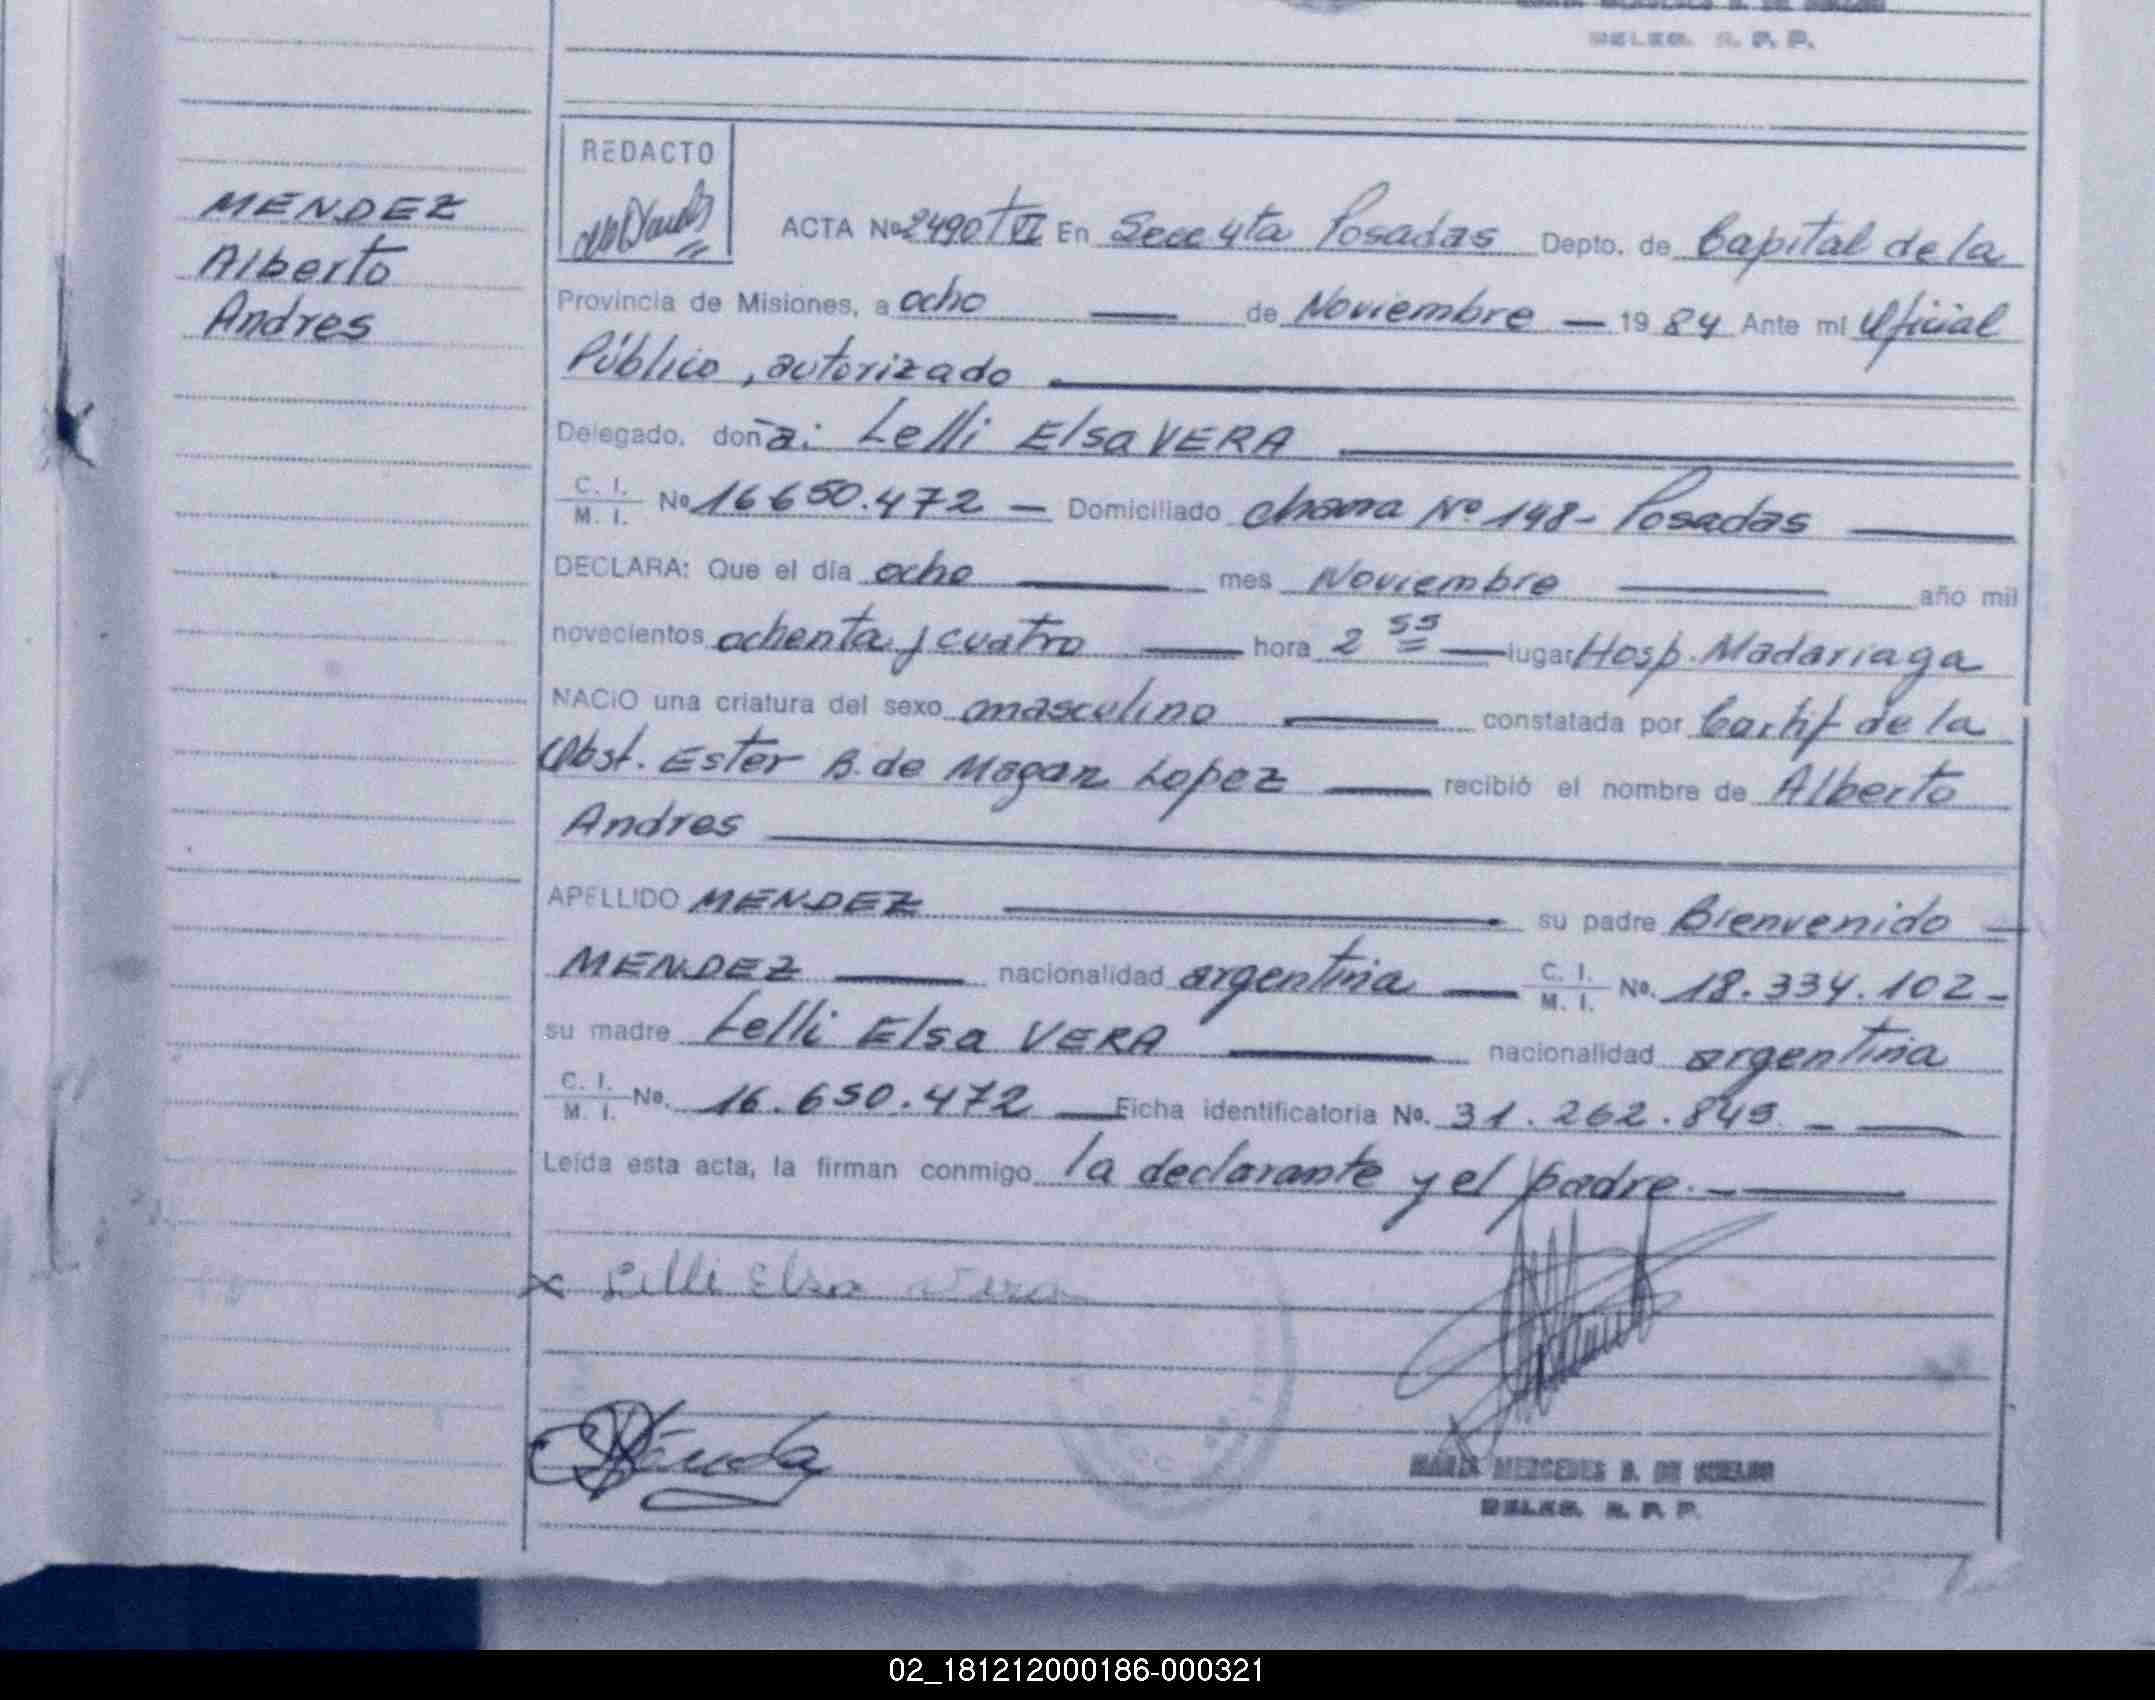 DELEG. R. P. P.
REDACTO
MENDEZ
Alberto
Andres
ACTA No 2490 T VI En Secc 4ta Posadas Depto. de Capital de la
Provincia de Misiones, a ocho de Noviembre 1984 Ante mi Oficial
Público, autorizado
Delegado, doña: Lelli Elsa VERA
C. I. / M. I. No 16650.472 - Domiciliado Nº 148 - Posadas
DECLARA: Que el día ocho mes Noviembre año mil
novecientos ochenta y cuatro hora 2 55 lugar Hosp. Madariaga
NACIO una criatura del sexo masculino constatada por Certif de la
Obst. Ester B. de Lopez recibió el nombre de Alberto
Andres
APELLIDO MENDEZ su padre Bienvenido
MENDEZ nacionalidad argentina C. I. / M. I. No. 18.334.102-
su madre Lelli Elsa VERA nacionalidad argentina
C. I. / M. I. No. 16.650.472 Ficha identificatoria No. 31.262.845 -
Leída esta acta, la firman conmigo la declarante y el padre. -
x Lelli Elsa Vera
MARIA MERCEDES B. DE
DELEG. R. P. P.
02_181212000186-000321